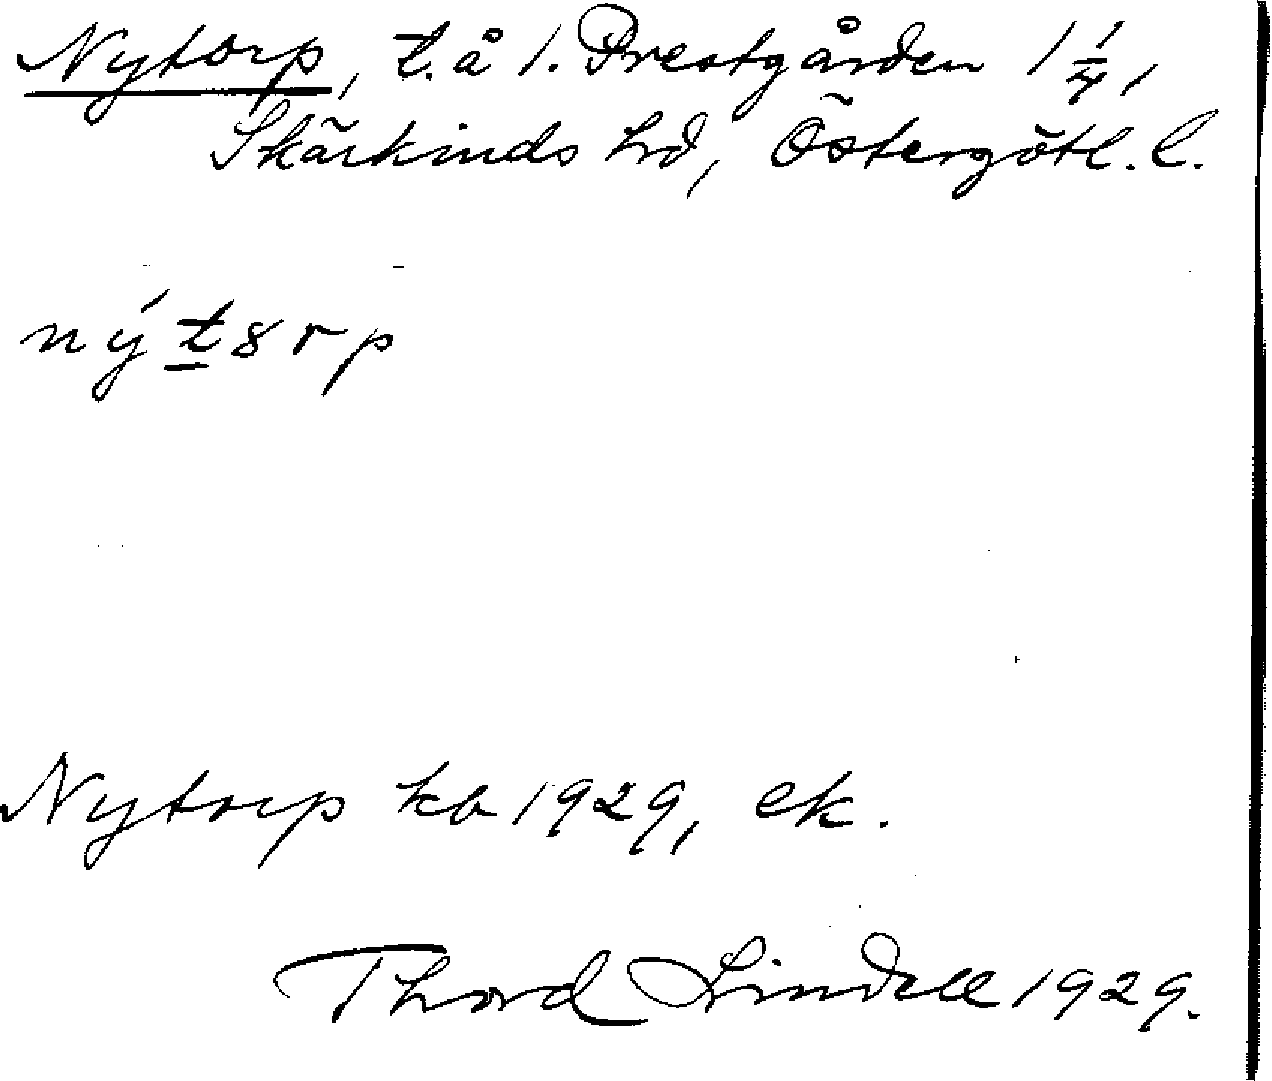 Nytorp, t. å 1. Prestgården 1 1/4,
Skärkinds hd, Östergötl. l.
ný t 8 r p
Nytorp kb 1929, ek.
Thord Lindell 1929.